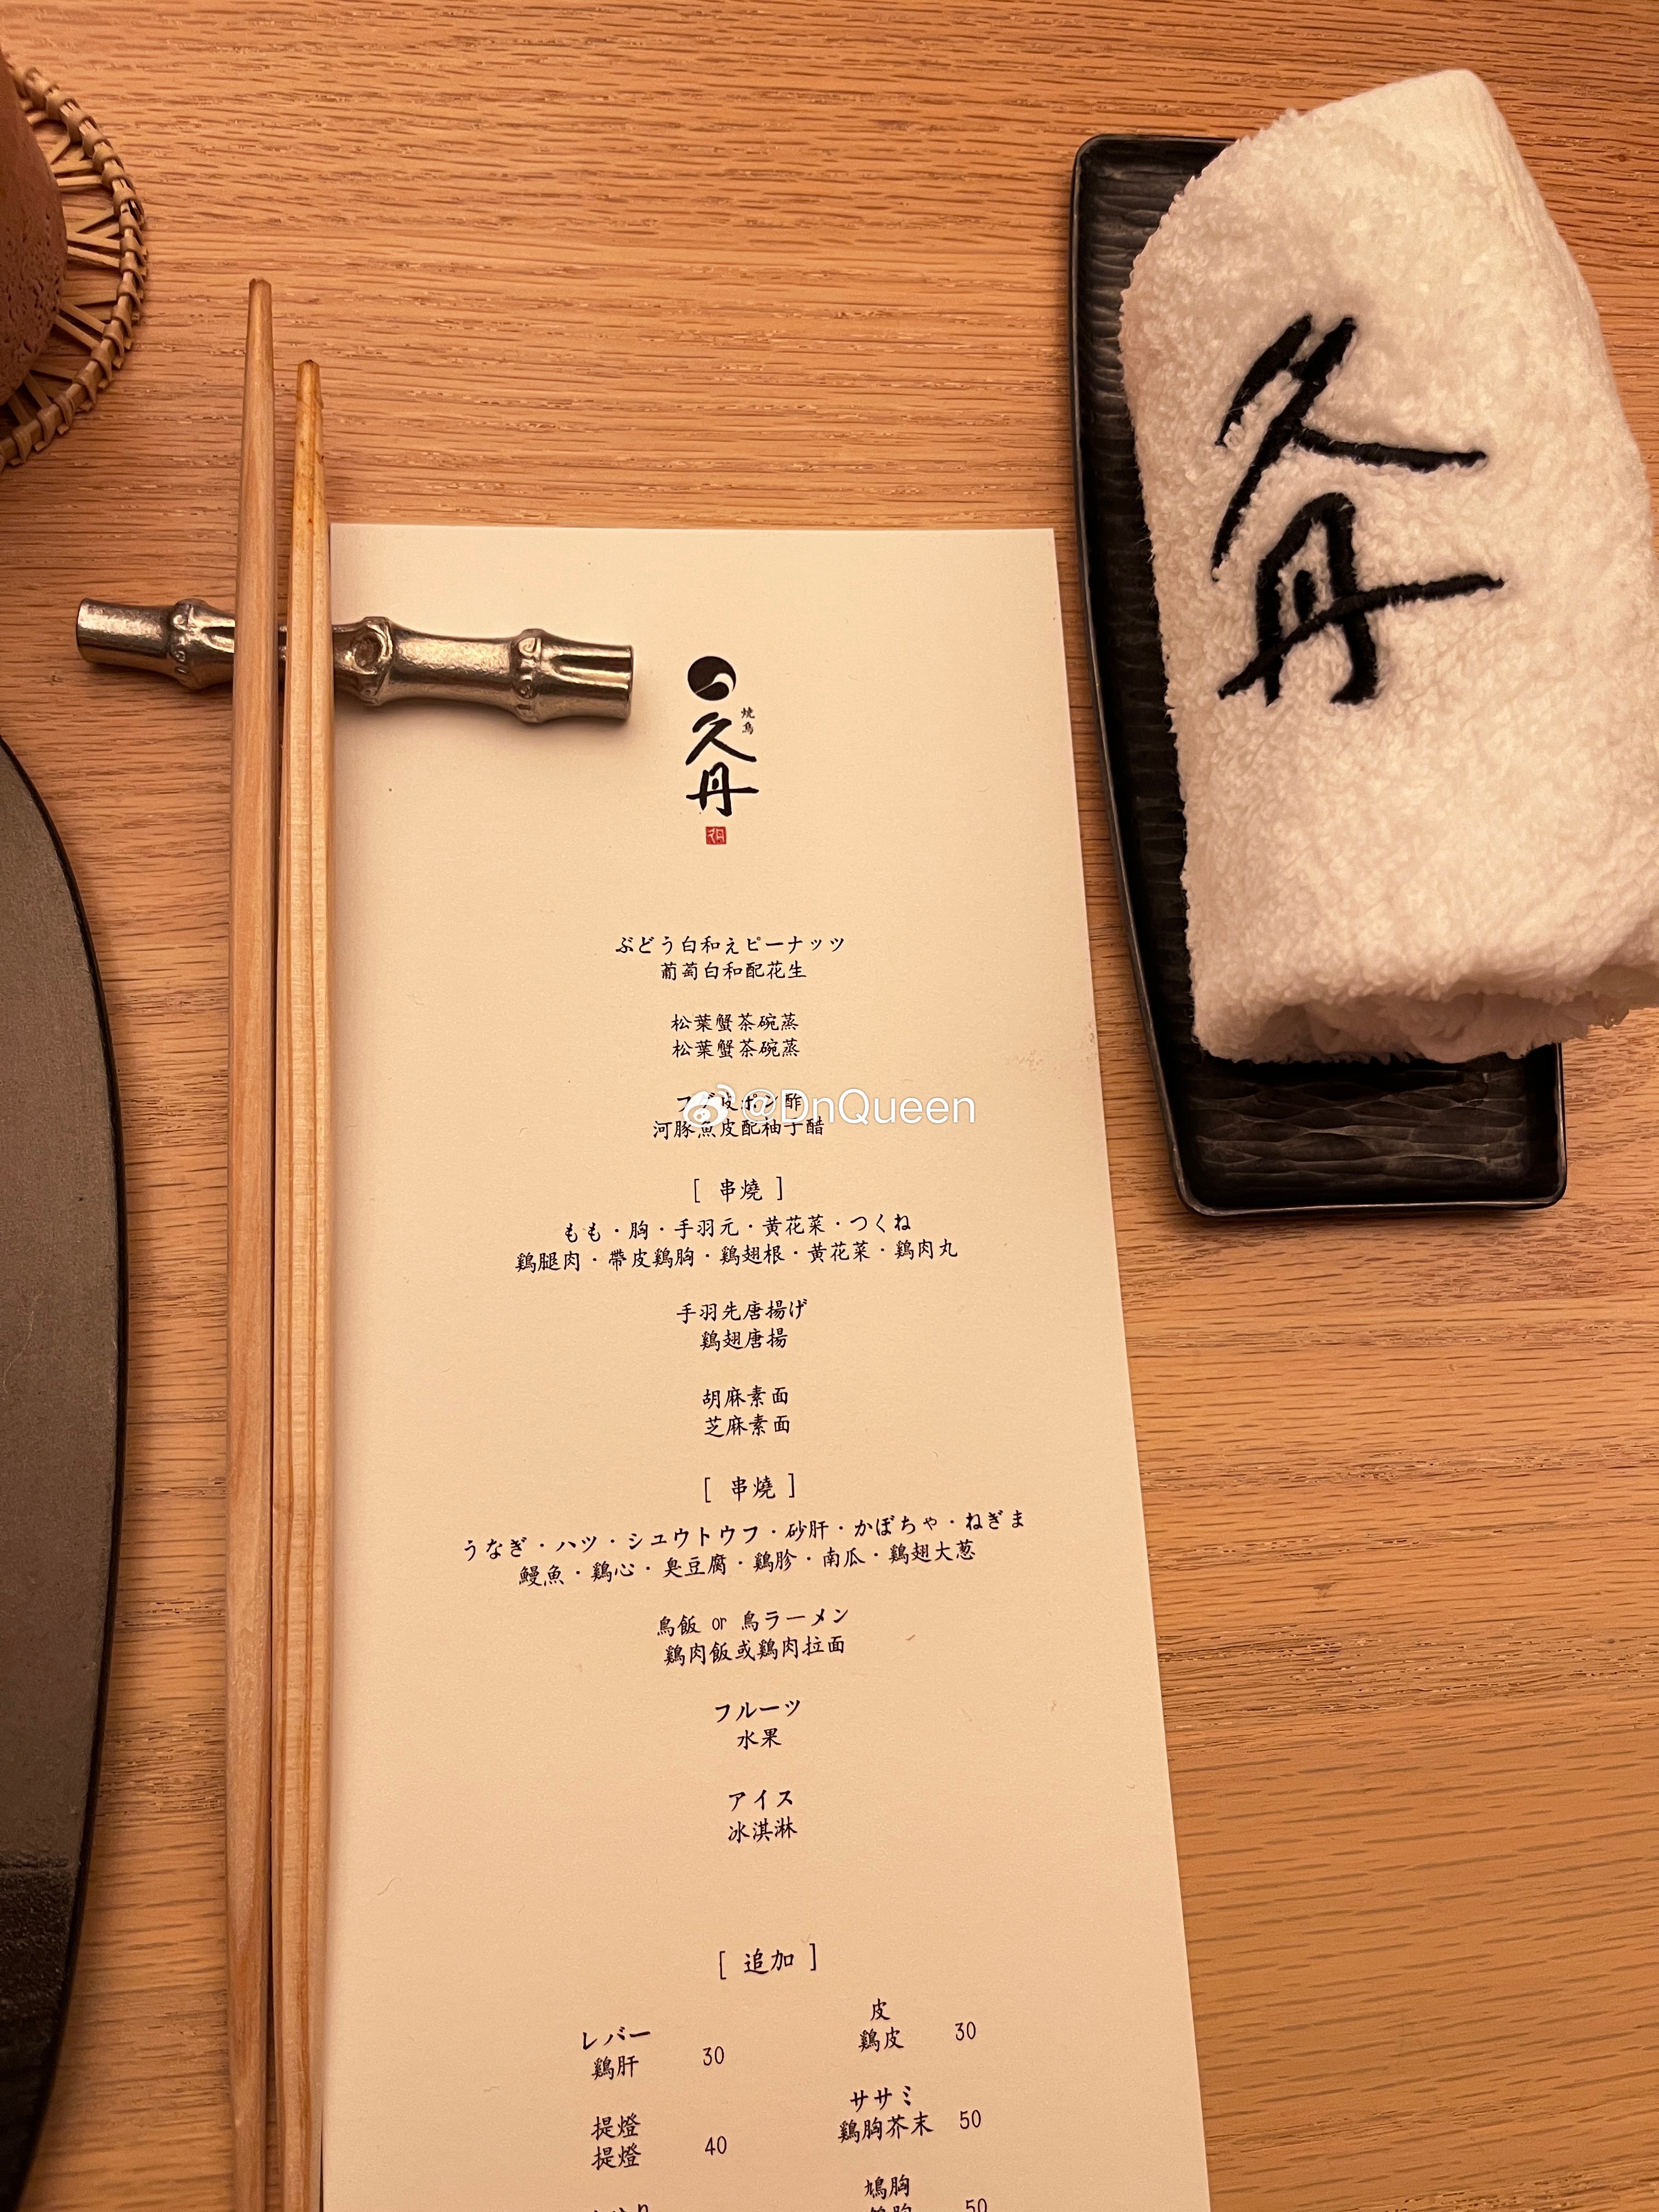 久丹
焼鳥
久丹
ぶどう白和えピーナッツ
葡萄白和配花生
松葉蟹茶碗蒸
松葉蟹茶碗蒸
@DnQueen
河豚魚皮配柚子醋
[ 串燒 ]
もも・胸・手羽元・黄花菜・つくね
鶏腿肉・帶皮鶏胸・鶏翅根・黄花菜・鶏肉丸
手羽先唐揚げ
鶏翅唐揚
胡麻素面
芝麻素面
[ 串燒 ]
うなぎ・ハツ・シュウトウフ・砂肝・かぼちゃ・ねぎま
鰻魚・鶏心・臭豆腐・鶏胗・南瓜・鶏翅大葱
鳥飯 or 鳥ラーメン
鶏肉飯或鶏肉拉面
フルーツ
水果
アイス
冰淇淋
[ 追加 ]
レバー
鶏肝 30
皮
鶏皮 30
提燈
提燈 40
ササミ
鶏胸芥末 50
鳩胸
50